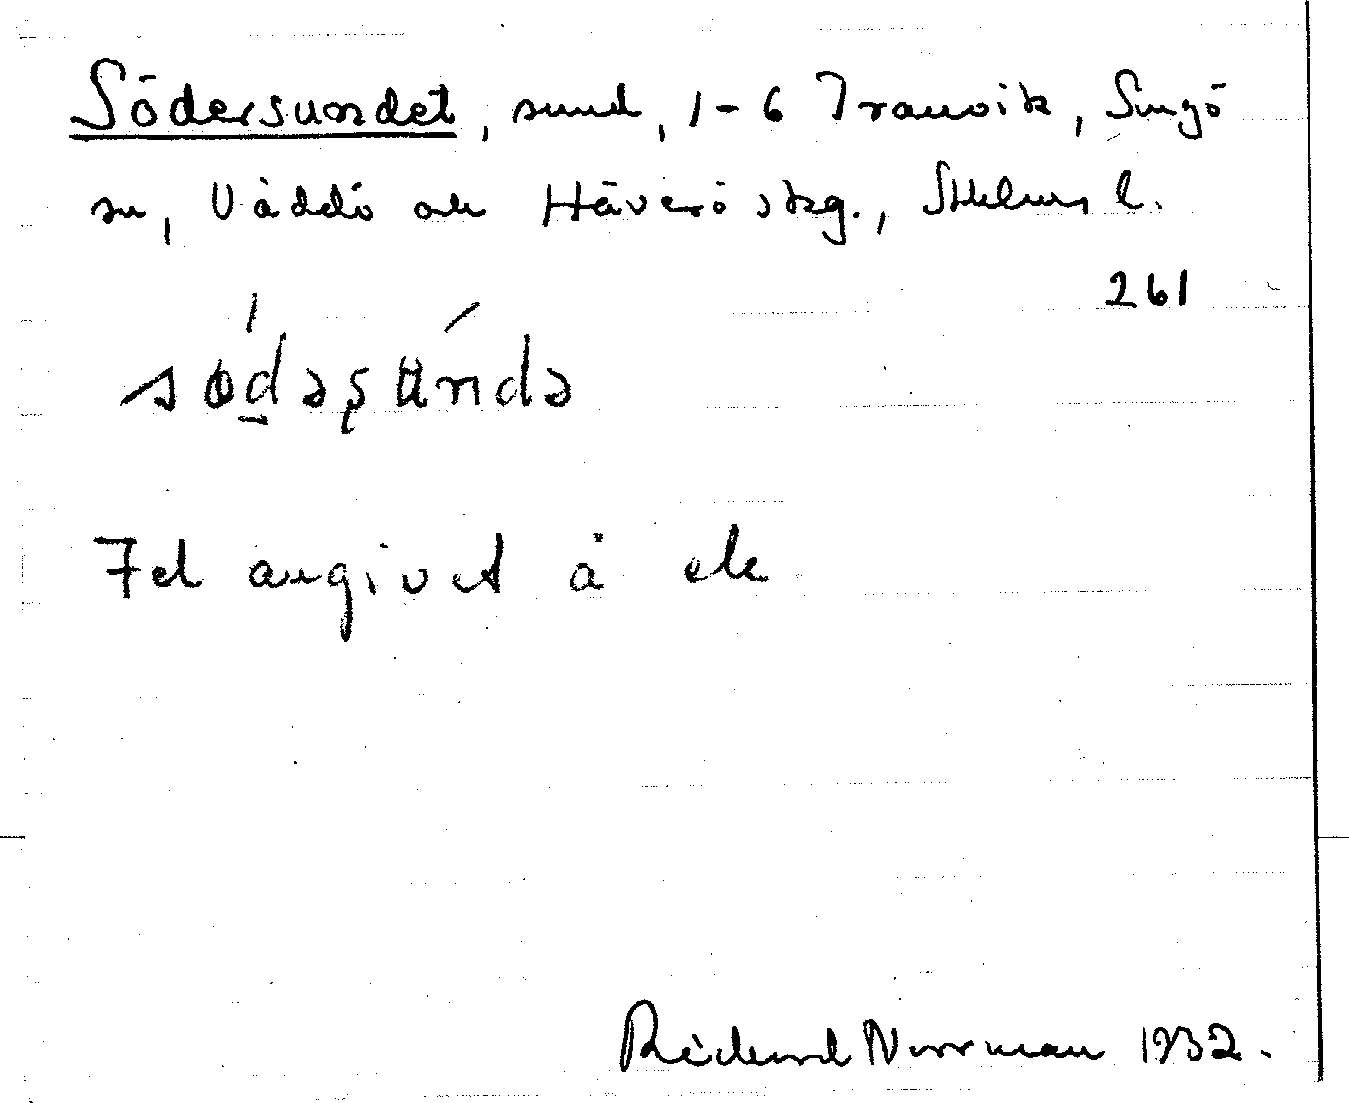 Södersundet, sund, 1-6 Tranvik, Singö
sn, Väddö och Häverö skg., Sthlms l.
261
Fel angivet å ek
Richard Norrman 1932.